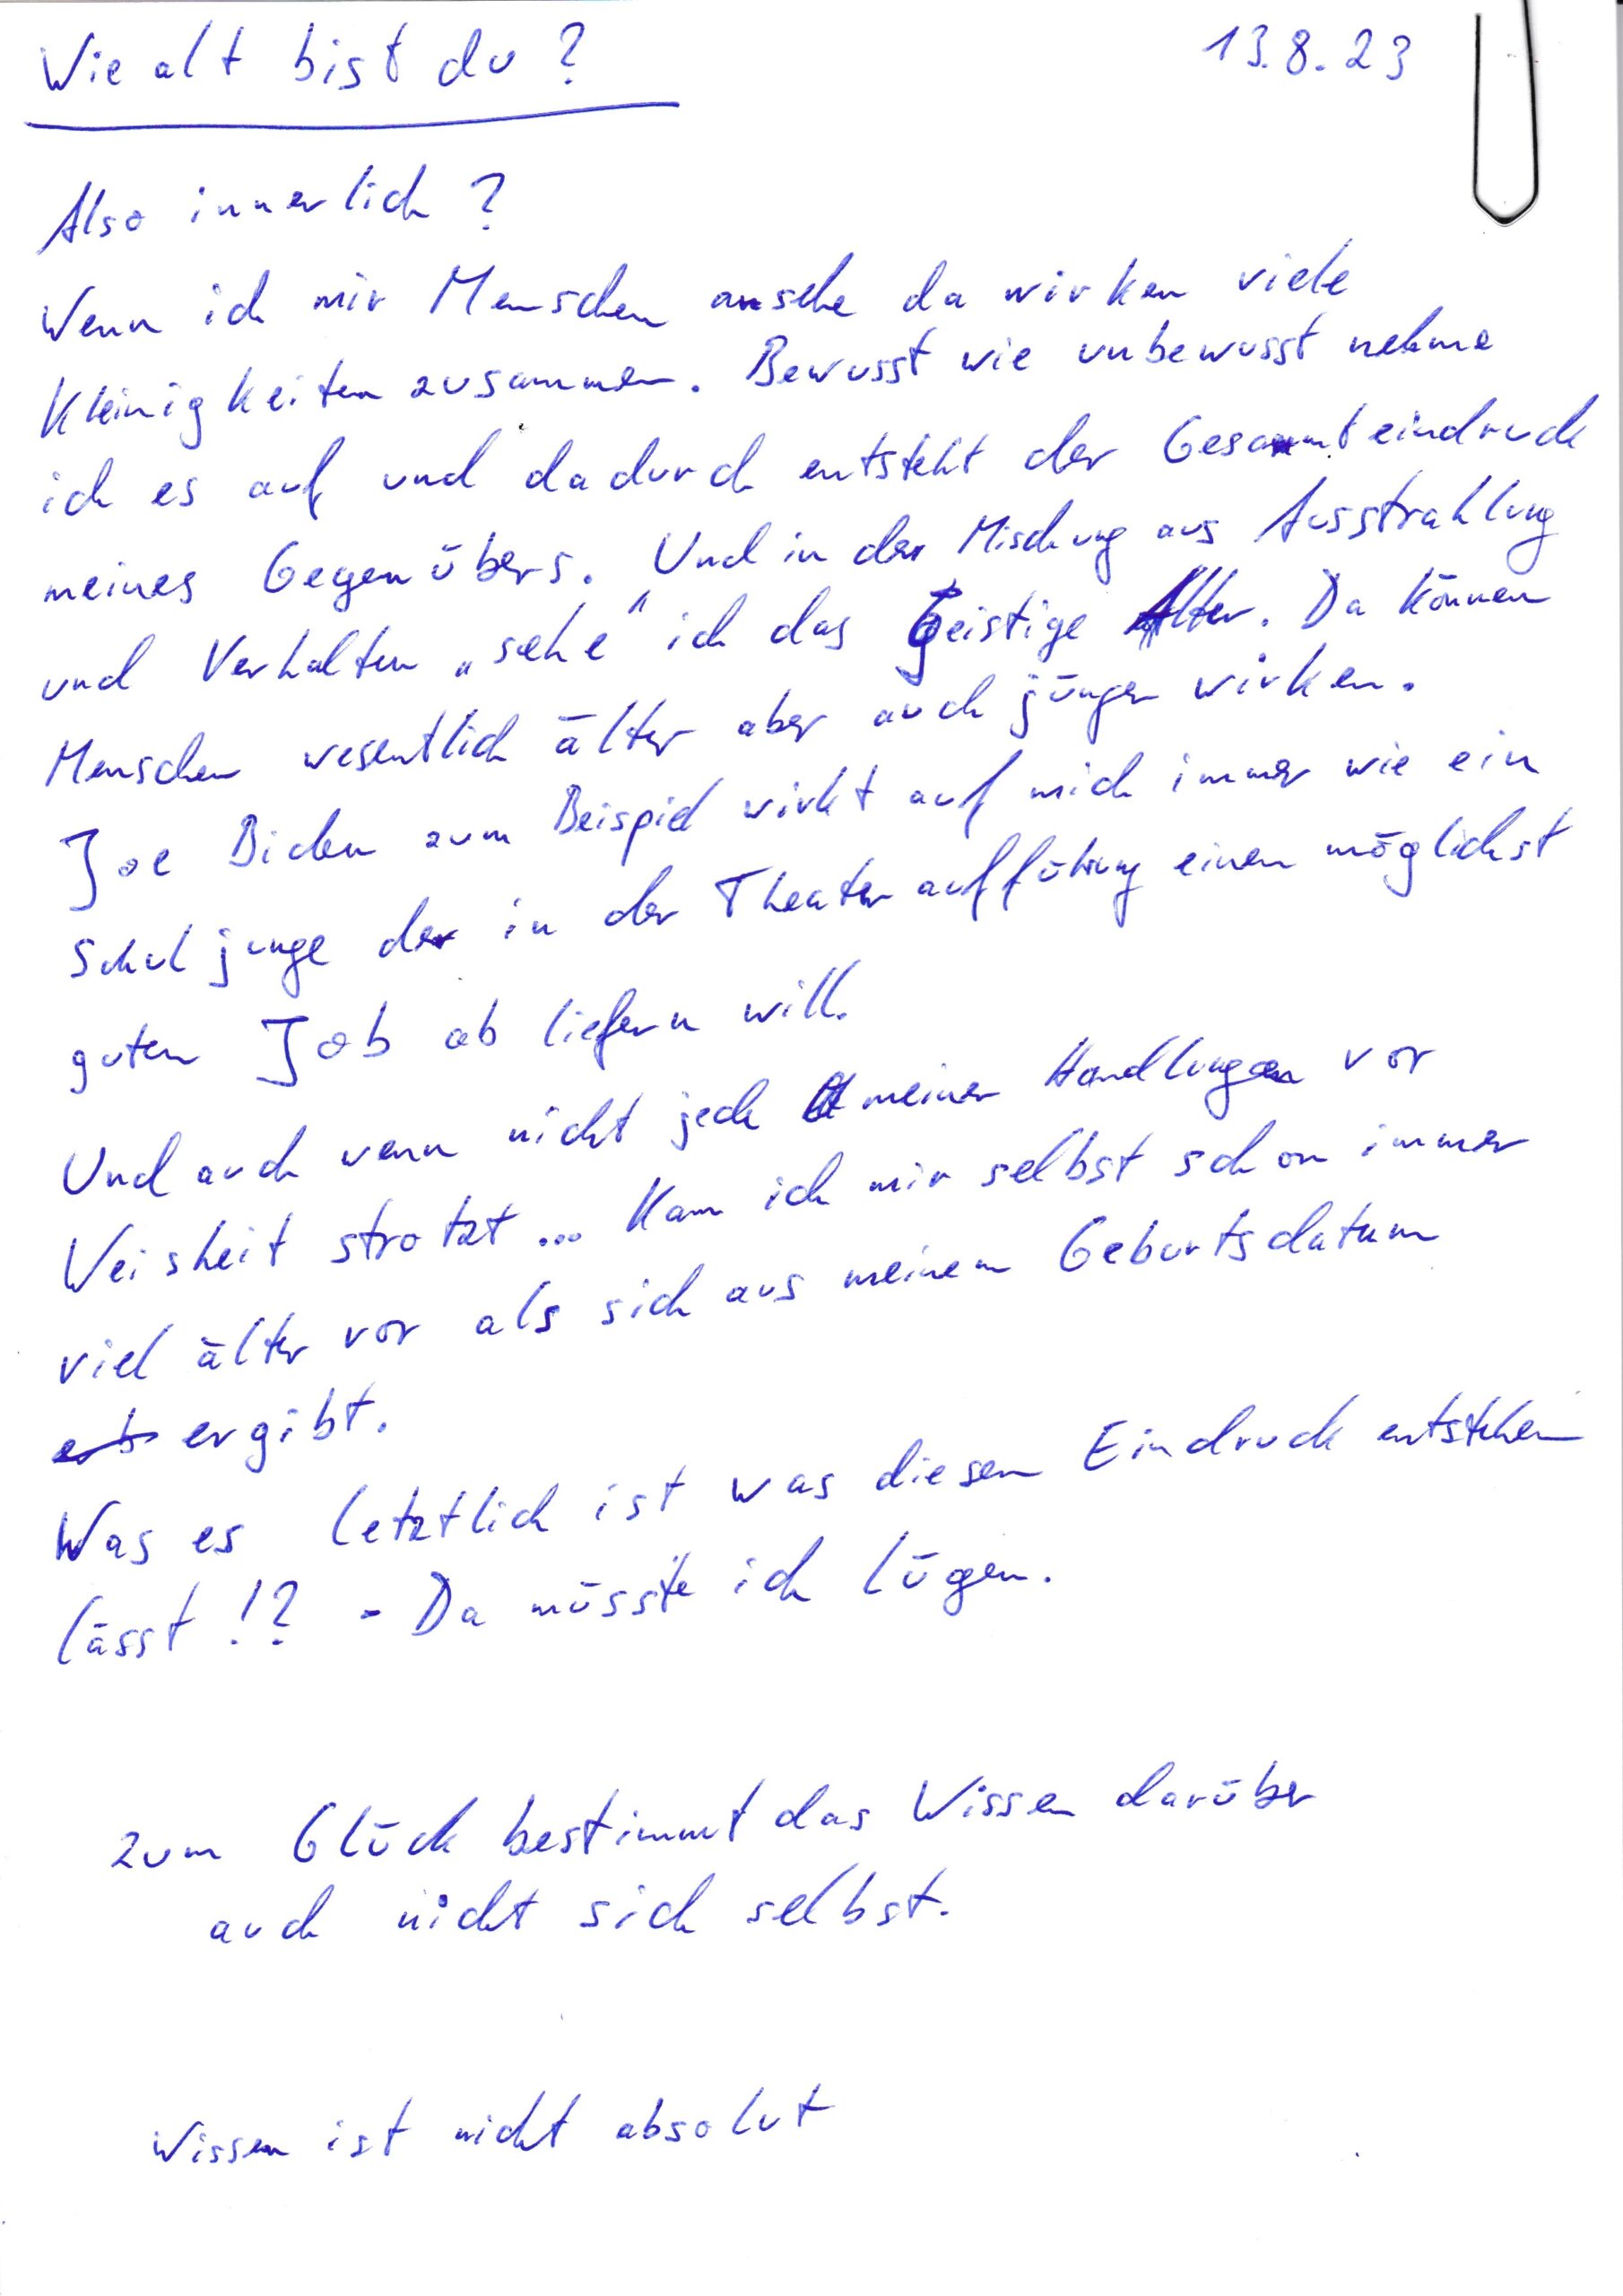 Wie alt bist du? 13.8.23
Also innerlich?
Wenn ich mir Menschen ansehe da wirken viele
Kleinigkeiten zusammen. Bewusst wie unbewusst nehme
ich es auf und dadurch entsteht der Gesamteindruck
meines Gegenübers. Und in der Mischung aus Ausstrahlung
und Verhalten „sehe" ich das geistige Alter. Da können
Menschen wesentlich älter aber auch jünger wirken.
Joe Biden zum Beispiel wirkt auf mich immer wie ein
Schuljunge der in der Theateraufführung einen möglichst
guten Job ab liefern will.
Und auch wenn nicht jede meiner Handlungen vor
Weisheit strotzt... Kam ich mir selbst schon immer
viel älter vor als sich aus meinem Geburtsdatum
ergibt.
Was es letztlich ist was diesen Eindruck entstehen
lässt!? - Da müsste ich lügen.
Zum Glück bestimmt das Wissen darüber
auch nicht sich selbst.
Wissen ist nicht absolut